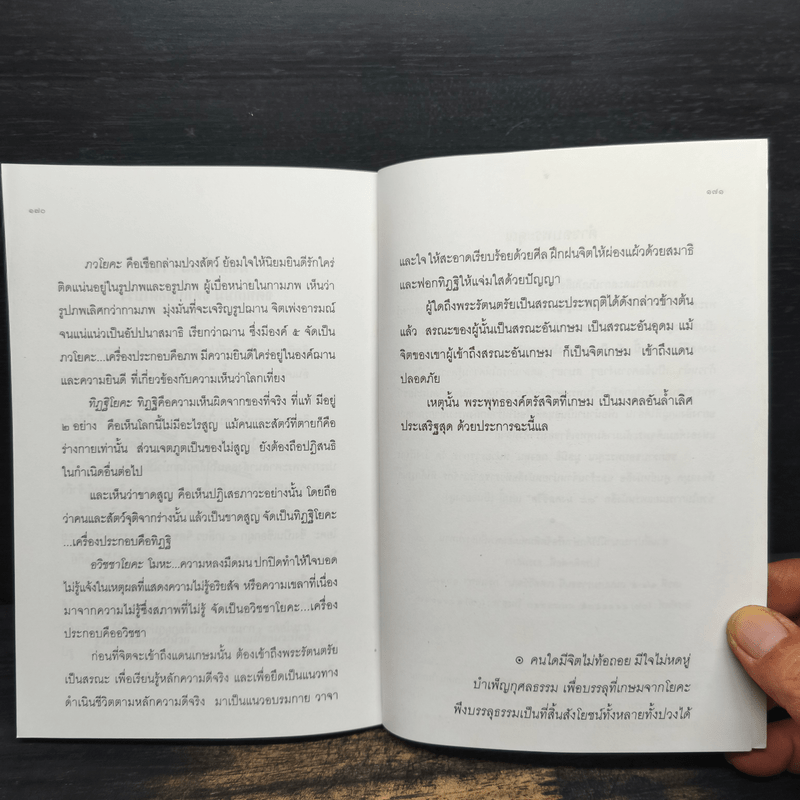 ๑๗๐
ภวโยคะ คือเชือกล่ามปวงสัตว์ ย้อมใจให้นิยมยินดีรักใคร่
ติดแน่นอยู่ในรูปภพและอรูปภพ ผู้เบื่อหน่ายในกามภพ เห็นว่า
รูปภพเลิศกว่ากามภพ มุ่งมั่นที่จะเจริญรูปฌาน จิตเพ่งอารมณ์
จนแน่นแน่วเป็นอัปปนาสมาธิ เรียกว่าฌาน ซึ่งมีองค์ ๕ จัดเป็น
ภวโยคะ...เครื่องประกอบคือภพ มีความยินดีใคร่อยู่ในองค์ฌาน
และความยินดี ที่เกี่ยวข้องกับความเห็นว่าโลกเที่ยง
ทิฏฐิโยคะ ทิฏฐิคือความเห็นผิดจากของที่จริง ที่แท้ มีอยู่
๒ อย่าง คือเห็นโลกนี้ไม่มีอะไรสูญ แม้คนและสัตว์ที่ตายก็คือ
ร่างกายเท่านั้น ส่วนเจตภูตเป็นของไม่สูญ ยังต้องถือปฏิสนธิ
ในกำเนิดอื่นต่อไป
และเห็นว่าขาดสูญ คือเห็นปฏิเสธภาวะอย่างนั้น โดยถือ
ว่าคนและสัตว์จุติจากร่างนั้น แล้วเป็นขาดสูญ จัดเป็นทิฏฐิโยคะ
...เครื่องประกอบคือทิฏฐิ
อวิชชาโยคะ โมหะ...ความหลงมืดมน ปกปิดทำให้ใจบอด
ไม่รู้แจ้งในเหตุผลที่แสดงความไม่รู้อริยสัจ หรือความเขลาที่เนื่อง
มาจากความไม่รู้ซึ่งสภาพที่ไม่รู้ จัดเป็นอวิชชาโยคะ...เครื่อง
ประกอบคืออวิชชา
ก่อนที่จิตจะเข้าถึงแดนเกษมนั้น ต้องเข้าถึงพระรัตนตรัย
เป็นสรณะ เพื่อเรียนรู้หลักความดีจริง และเพื่อยึดเป็นแนวทาง
ดำเนินชีวิตตามหลักความดีจริง มาเป็นแนวอบรมกาย วาจา
๑๗๑
และใจ ให้สะอาดเรียบร้อยด้วยศีล ฝึกฝนจิตให้ผ่องแผ้วด้วยสมาธิ
และฟอกทิฏฐิให้แจ่มใสด้วยปัญญา
ผู้ใดถึงพระรัตนตรัยเป็นสรณะประพฤติได้ดังกล่าวข้างต้น
แล้ว สรณะของผู้นั้นเป็นสรณะอันเกษม เป็นสรณะอันอุดม แม้
จิตของเขาผู้เข้าถึงสรณะอันเกษม ก็เป็นจิตเกษม เข้าถึงแดน
ปลอดภัย
เหตุนั้น พระพุทธองค์ตรัสจิตที่เกษม เป็นมงคลอันล้ำเลิศ
ประเสริฐสุด ด้วยประการฉะนี้แล
๏ คนใดมีจิตไม่ท้อถอย มีใจไม่หดหู่
บำเพ็ญกุศลธรรม เพื่อบรรลุที่เกษมจากโยคะ
พึงบรรลุธรรมเป็นที่สิ้นสังโยชน์ทั้งหลายทั้งปวงได้